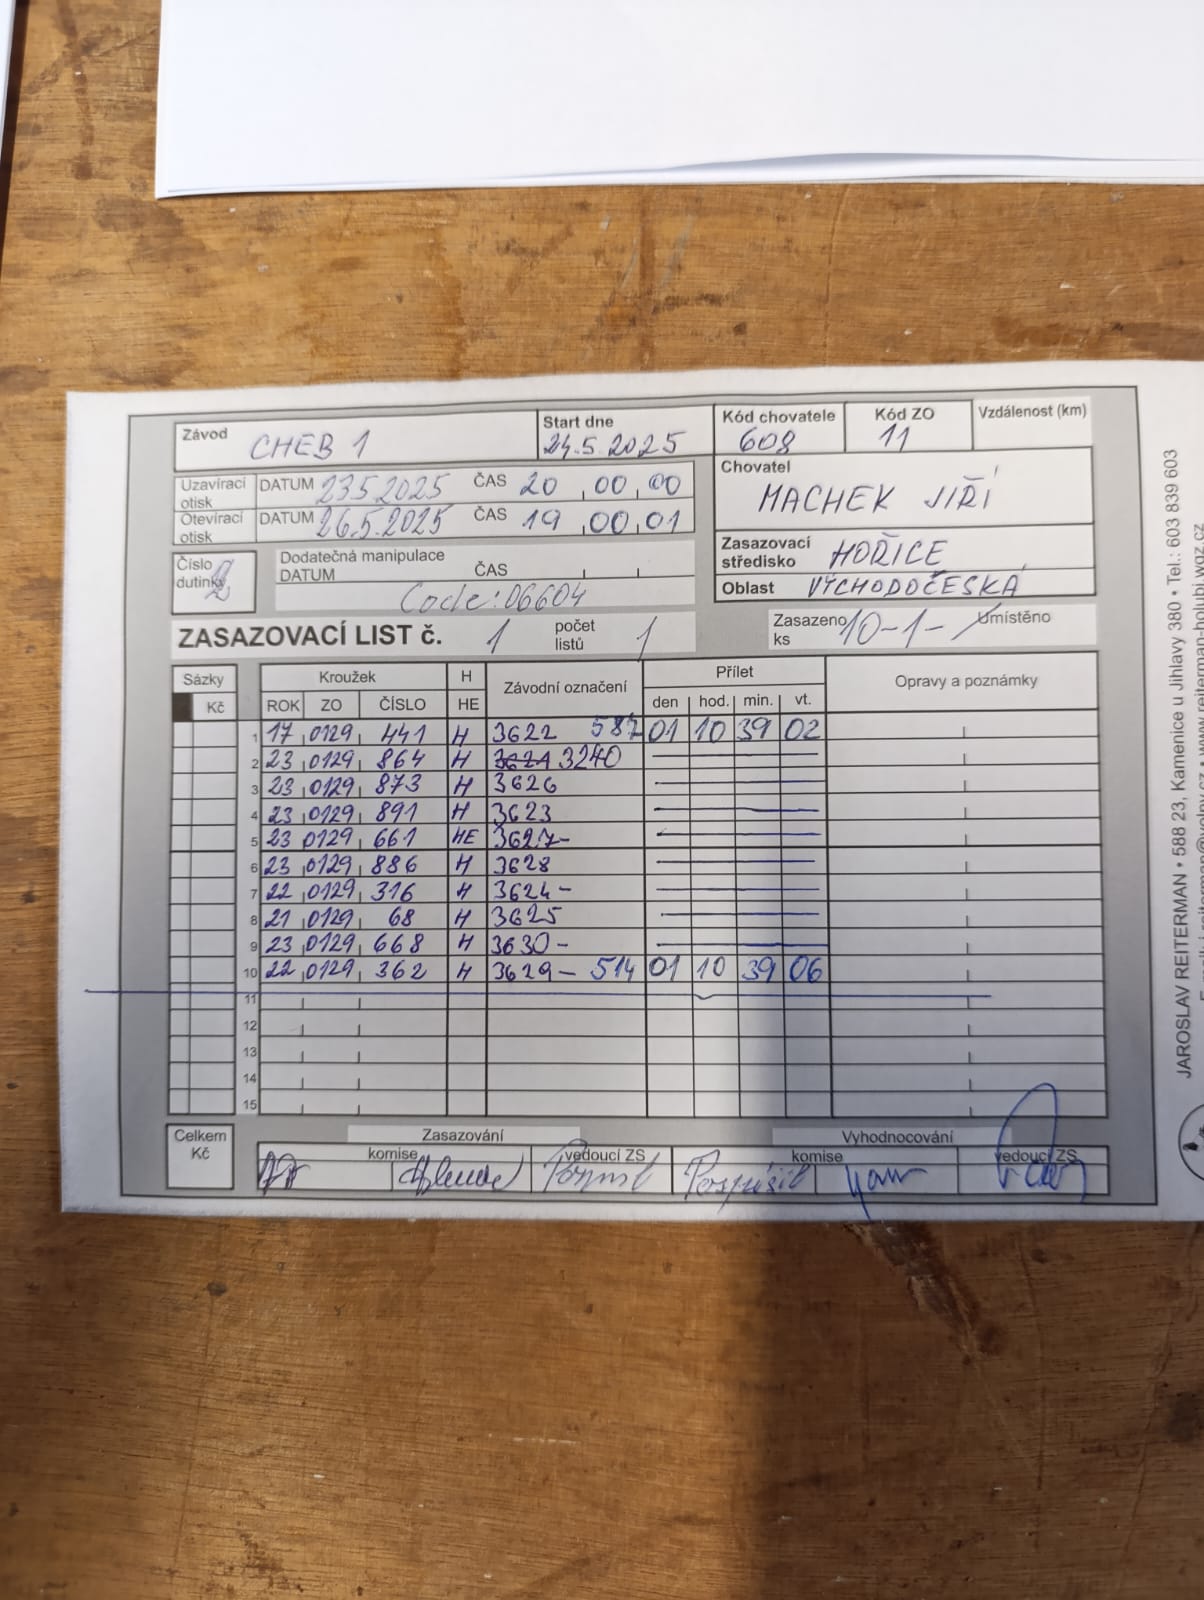 Závod CHEB 1 Start dne 24.5.2025 Kód chovatele 608 Kód ZO 11 Vzdálenost (km)
Uzavírací otisk DATUM 23.5.2025 ČAS 20 00 00
Otevírací otisk DATUM 26.5.2025 ČAS 19 00 01
Chovatel MACHEK JIŘÍ
Zasazovací středisko HOŘICE
Oblast VÝCHODOČESKÁ
Číslo dutinky
Dodatečná manipulace
DATUM ČAS
Code: 06604
ZASAZOVACÍ LIST č. 1 počet listů 1
Zasazeno ks 10-1- Umístěno
Sázky Kroužek H Závodní označení Přílet Opravy a poznámky
Kč ROK ZO ČÍSLO HE den hod. min. vt.
1 17 0129 441 H 3622 587 01 10 39 02
2 23 0129 864 H 3621 3240
3 23 0129 873 H 3626
4 23 0129 891 H 3623
5 23 0129 661 HE 3627-
6 23 0129 886 H 3628
7 22 0129 316 H 3624-
8 21 0129 68 H 3625
9 23 0129 668 H 3630-
10 22 0129 362 H 3629- 514 01 10 39 06
11
12
13
14
15
Celkem Kč
Zasazování Vyhodnocování
komise vedoucí ZS komise vedoucí ZS
Pospíšil
JAROSLAV REITERMAN • 588 23, Kamenice u Jihlavy 380 • Tel.: 603 839 603
www.reiterman-holubi.wgz.cz